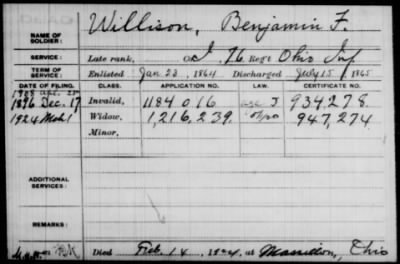 NAME OF SOLDIER: Willison, Benjamin F.
SERVICE: Late rank, Co. I, 76 Reg't Ohio Inf
TERM OF SERVICE: Enlisted Jan 23, 1864 Discharged July 15, 1865
DATE OF FILING. CLASS. APPLICATION NO. LAW. CERTIFICATE NO.
1896 Dec. 17 Invalid, 1184016 934,278.
1924 Mch 1 Widow, 1,216,239 947,274
Minor,
ADDITIONAL SERVICES:
REMARKS:
Died Feb. 14, 1924, at Massillon, Ohio